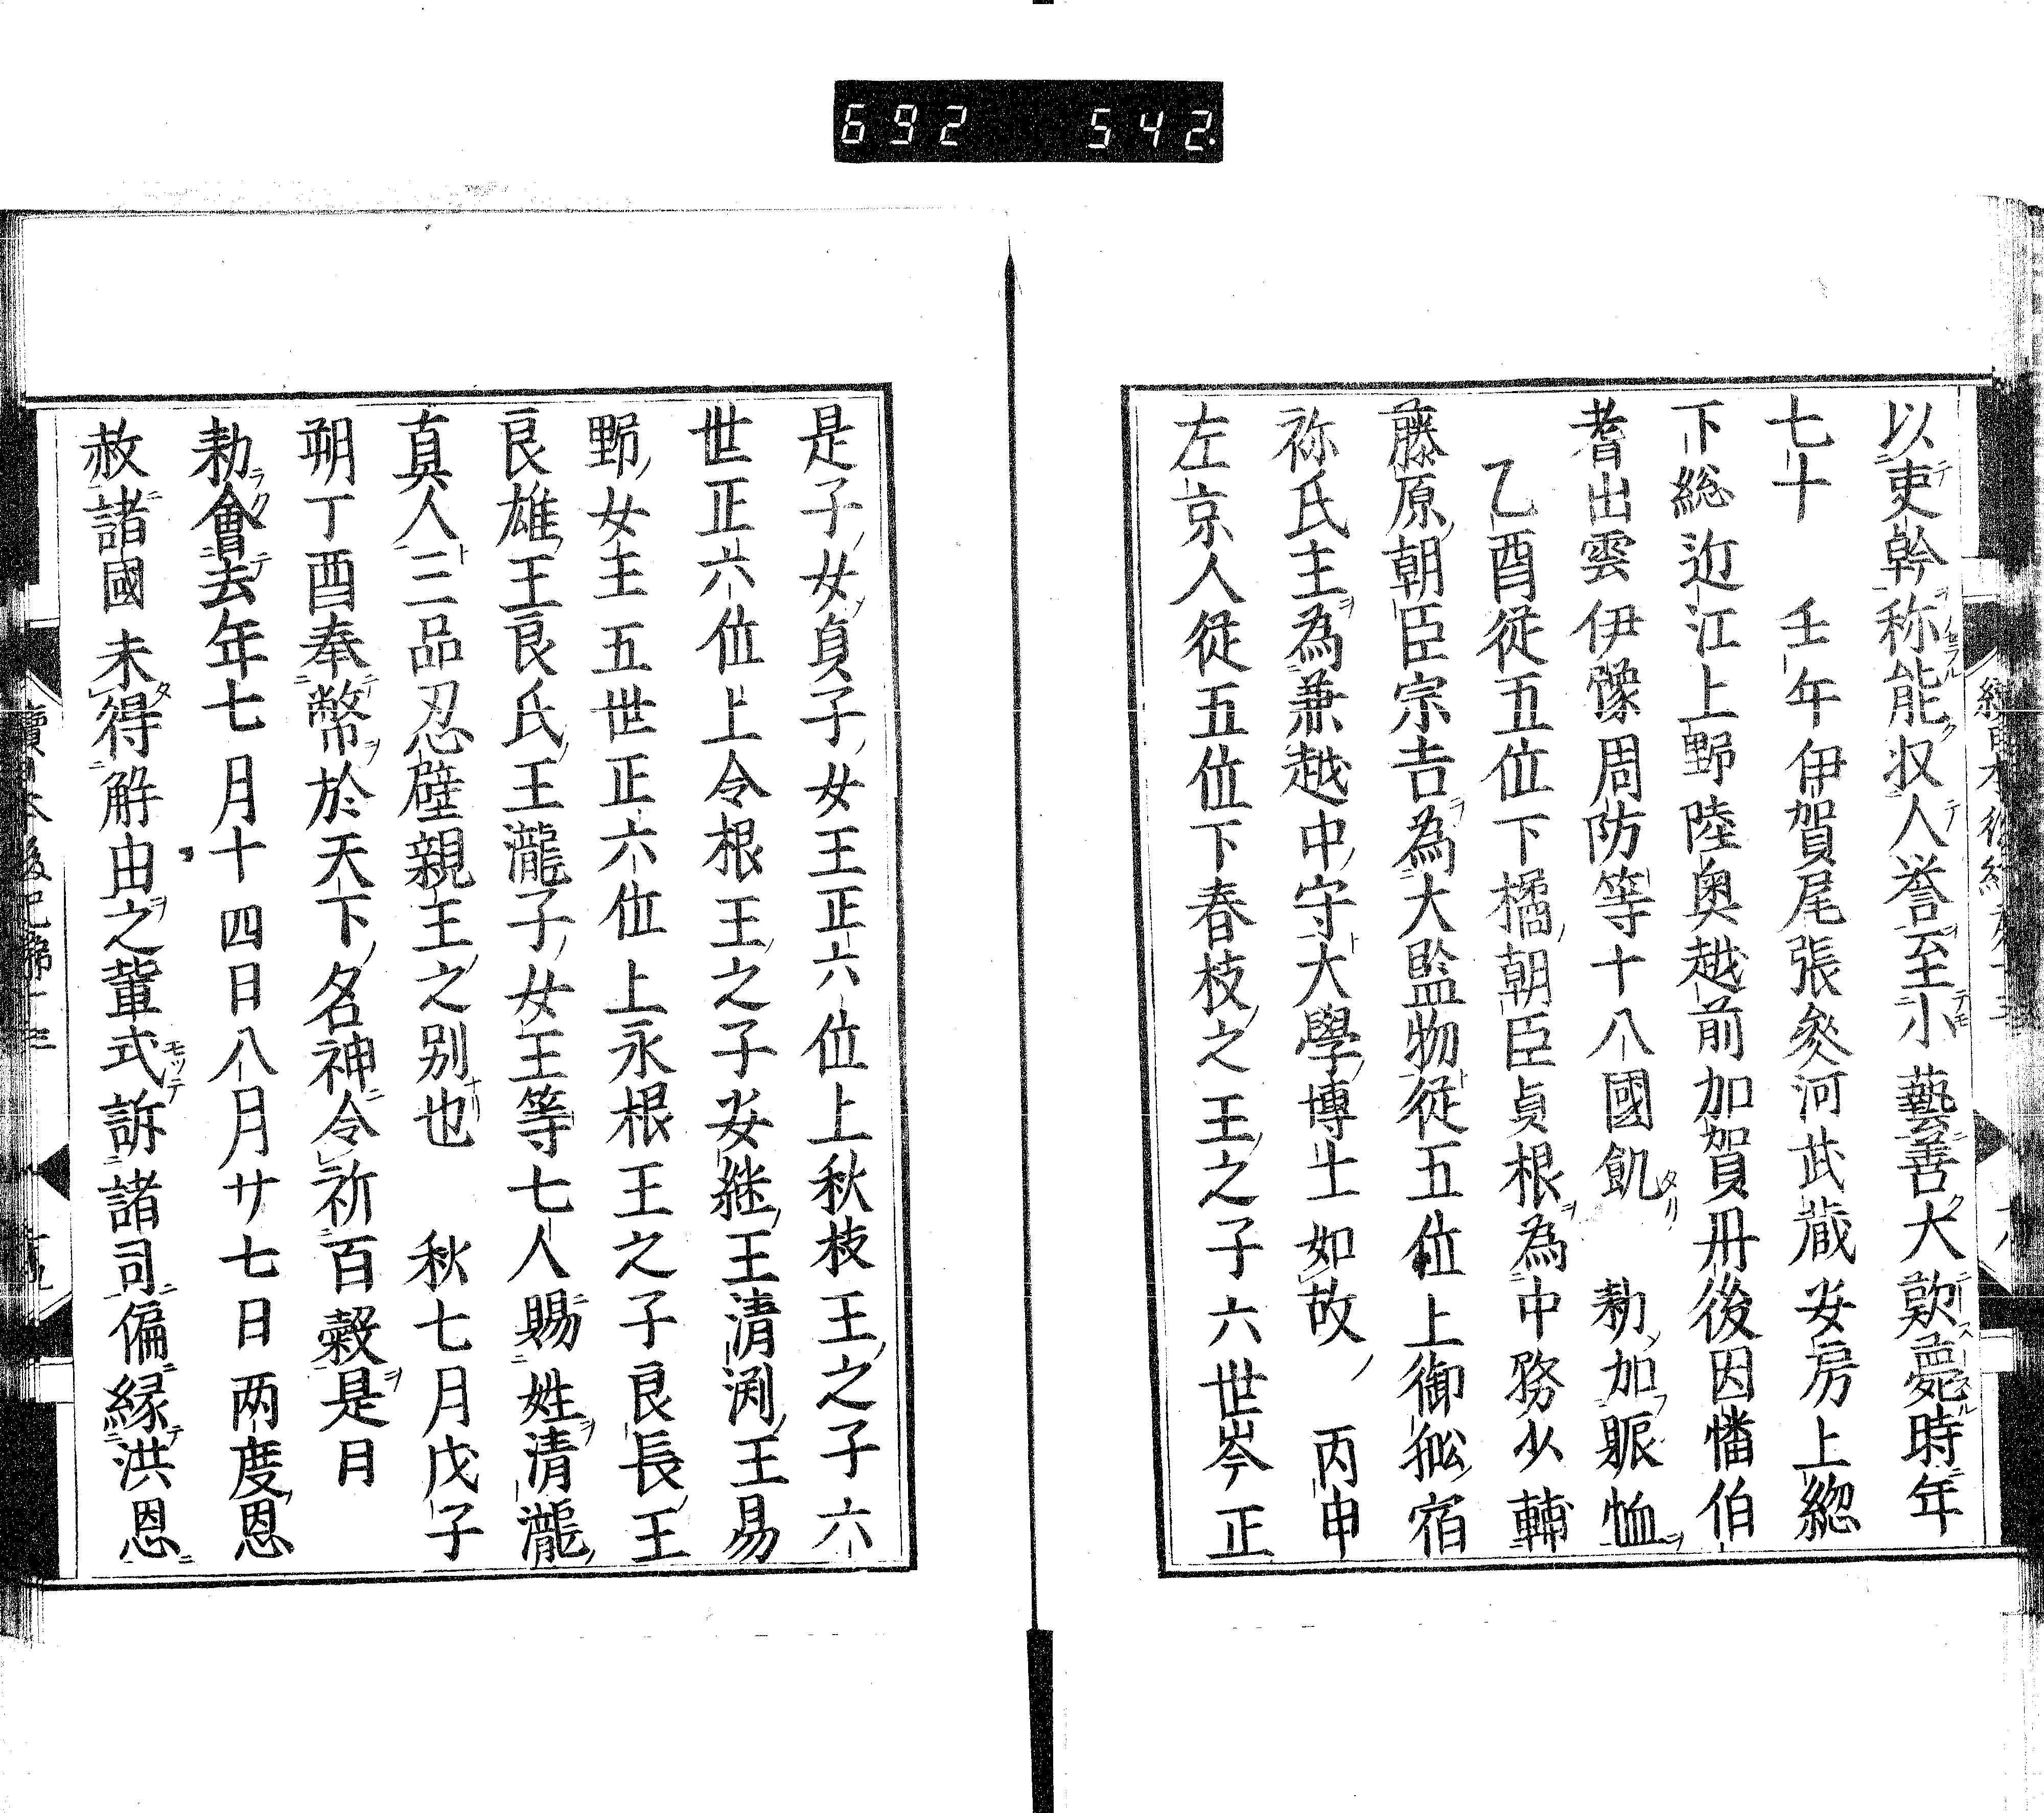 692 542.
以吏幹称能収人誉至小藝善大歎薨時年
七十 壬午伊賀尾張叅河武蔵安房上総
下総近江上野陸奥越前加賀丹後因幡伯
耆出雲伊豫周防等十八國飢 勅加賑恤
乙酉従五位下橘朝臣貞根為中務少輔
藤原朝臣宗吉為大監物従五位上御船宿
祢氏主為兼越中守大學博士如故 丙申
左京人従五位下春枝之王之子六世岑正
是子女貞子女王正六位上秋枝王之子六
世正六位上令根王之子安継王清渕王易
野女王五世正六位上永根王之子良長王
良雄王良氏王瀧子女王等七人賜姓清瀧
真人三品忍壁親王之別也 秋七月戊子
朔丁酉奉幣於天下名神令祈百穀是日
勅會去年七月十四日八月廿七日两度恩
赦諸國未得解由之輩式訴諸司偏縁洪恩